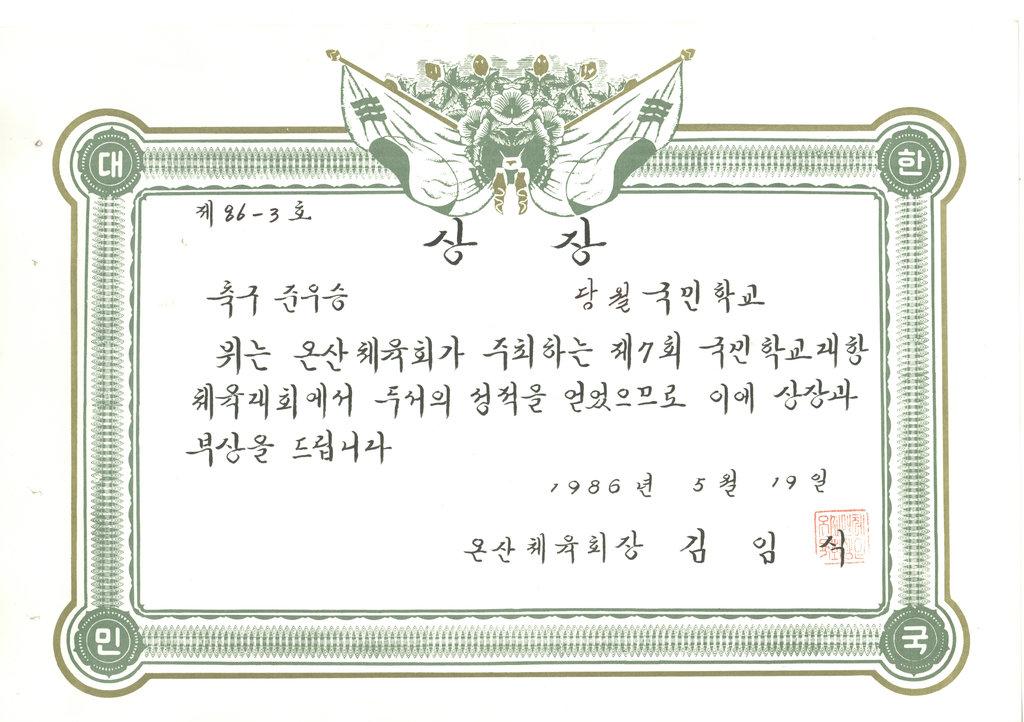 대 한
제 86-3 호
상 장
축구 준우승 당월국민학교
위는 온산체육회가 주최하는 제7회 국민학교대항
체육대회에서 두서의 성적을 얻었으므로 이에 상장과
부상을 드립니다
1986년 5월 19일
온산체육회장 김임식
민 국